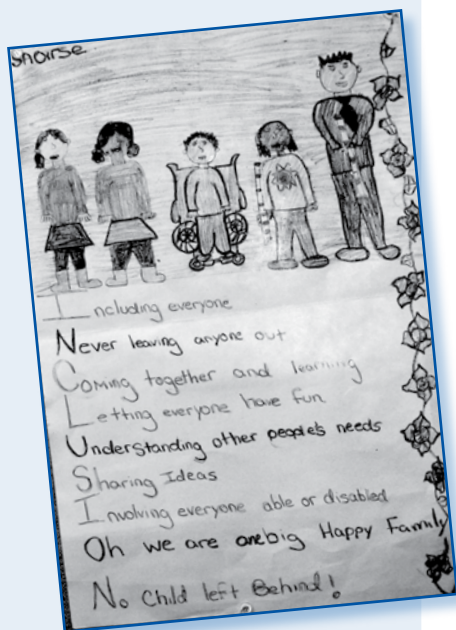 Including everyone
Never leaving anyone out
Coming together and learning
Letting everyone have fun
Understanding other people's needs
Sharing Ideas
Involving everyone able or disabled
Oh we are one big Happy Family
No Child left Behind!